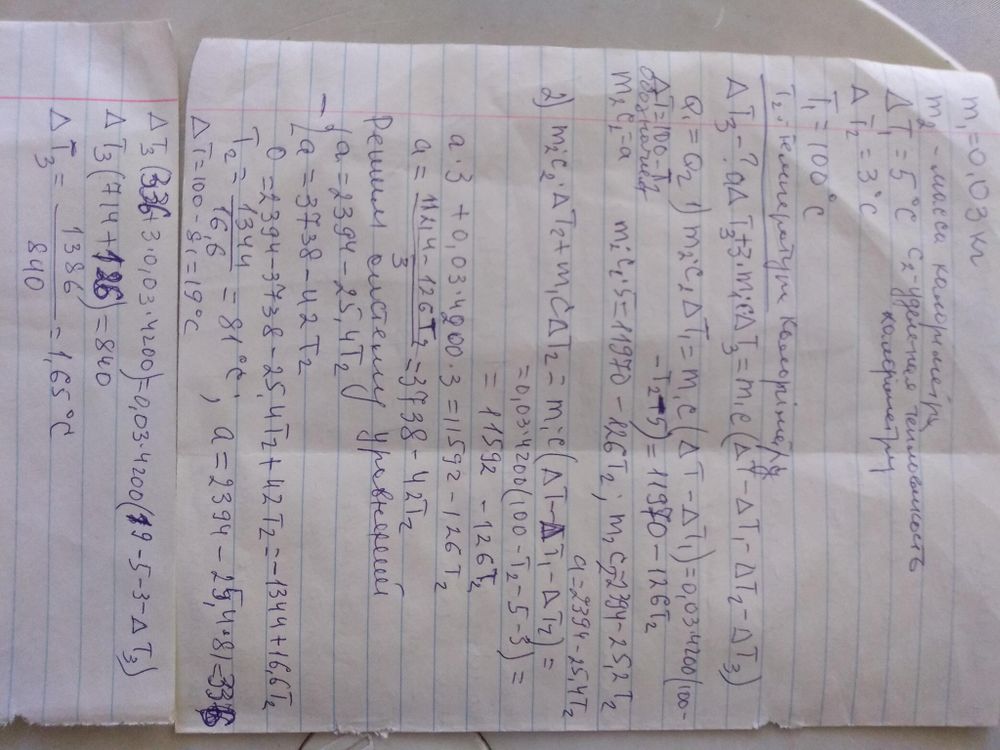 m₁=0,03 кг
m₂ - масса калориметра
ΔT₁ = 5°C c₂-удельная теплоёмкость
калориметру
ΔT₂ = 3°C
T₁ = 100°C
T₂ - температура калориметру
ΔT₃ - ? aΔT₃+3·m₁cΔT₃ = m₁c(ΔT-ΔT₁-ΔT₂-ΔT₃)
Q₁ = Q₂ 1) m₂c₂ΔT₁ = m₁c(ΔT-ΔT₁)=0,03·4200(100-
ΔT=100-T₂ -T₂-5)=11970-126T₂
обозначим
m₂c₂=a m₂c₂·5=11970-126T₂; m₂c₂=2394-25,2T₂
a=2394-25,4T₂
2) m₂c₂·ΔT₂+m₁cΔT₂=m₁c(ΔT-ΔT₁-ΔT₂)=
=0,03·4200(100-T₂-5-3)=
= 11592 - 126T₂
a·3 + 0,03·4200·3 = 11592-126T₂
a = 11214-126T₂ / 3 = 3738-42T₂
Решим систему уравнений
- {a=2394-25,4T₂
{a=3738-42T₂
0=2394-3738-25,4T₂+42T₂=-1344+16,6T₂
T₂ = 1344 / 16,6 = 81°C; a=2394-25,4·81=336
ΔT=100-81=19°C
ΔT₃(336+3·0,03·4200)=0,03·4200(19-5-3-ΔT₃)
ΔT₃(714+126)=840
ΔT₃ = 1386 / 840 = 1,65°C